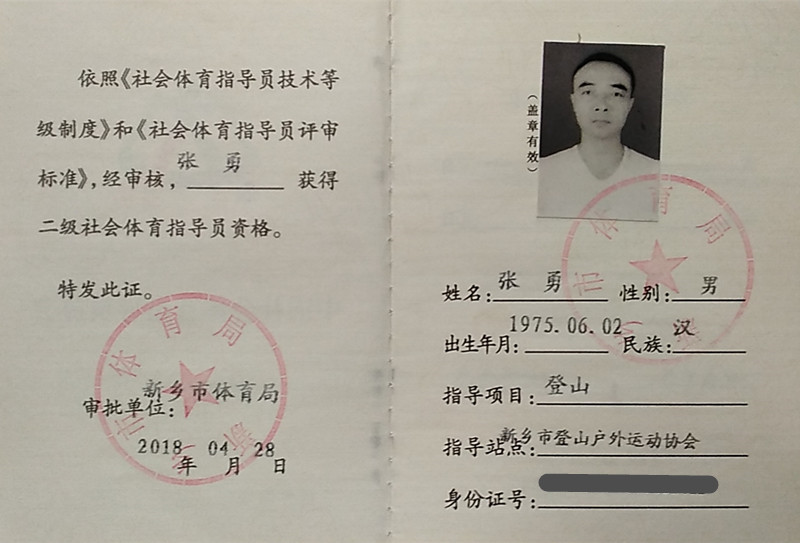 依照《社会体育指导员技术等
级制度》和《社会体育指导员评审
标准》,经审核, 张 勇 获得
二级社会体育指导员资格。
特发此证。
新乡市体育局
审批单位:
2018 04 28
年 月 日
新乡市体育局
(盖章有效)
新乡市体育局
姓名: 张 勇 性别: 男
出生年月: 1975.06.02 民族: 汉
指导项目: 登山
指导站点: 新乡市登山户外运动协会
身份证号: